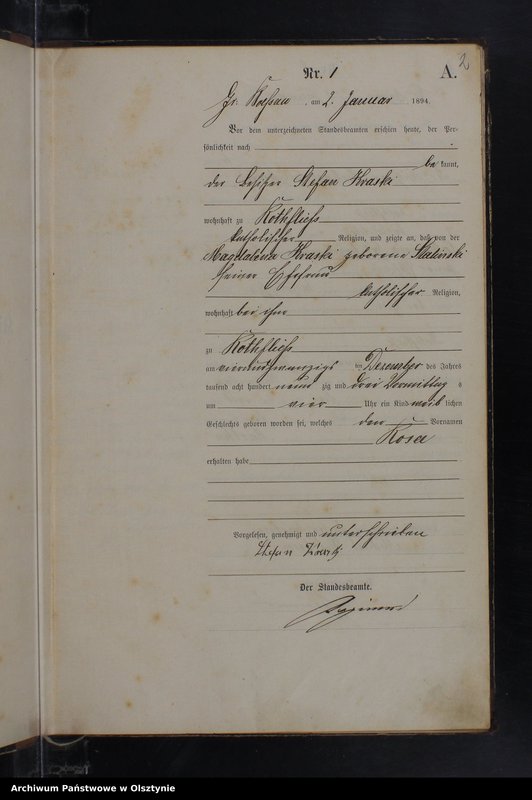 2
Nr. 1 A.
Gr. am 2. Januar 1894.
Vor dem unterzeichneten Standesbeamten erschien heute, der Per-
sönlichkeit nach
be kannt,
der Besitzer Stefan Kraski
wohnhaft zu Röthfliess
katholischer Religion, und zeigte an, daß von der
Magdalena Kraski geborene
seiner Ehefrau
katholischer Religion,
wohnhaft bei ihm
zu Röthfliess
am vierundzwanzigs ten Dezember des Jahres
tausend acht hundert neun zig und drei Vormittag s
um vier Uhr ein Kind weib lichen
Geschlechts geboren worden sei, welches den Vornamen
Rosa
erhalten habe
Vorgelesen, genehmigt und unterschrieben
Stefan
Der Standesbeamte.
Archiwum Państwowe w Olsztynie